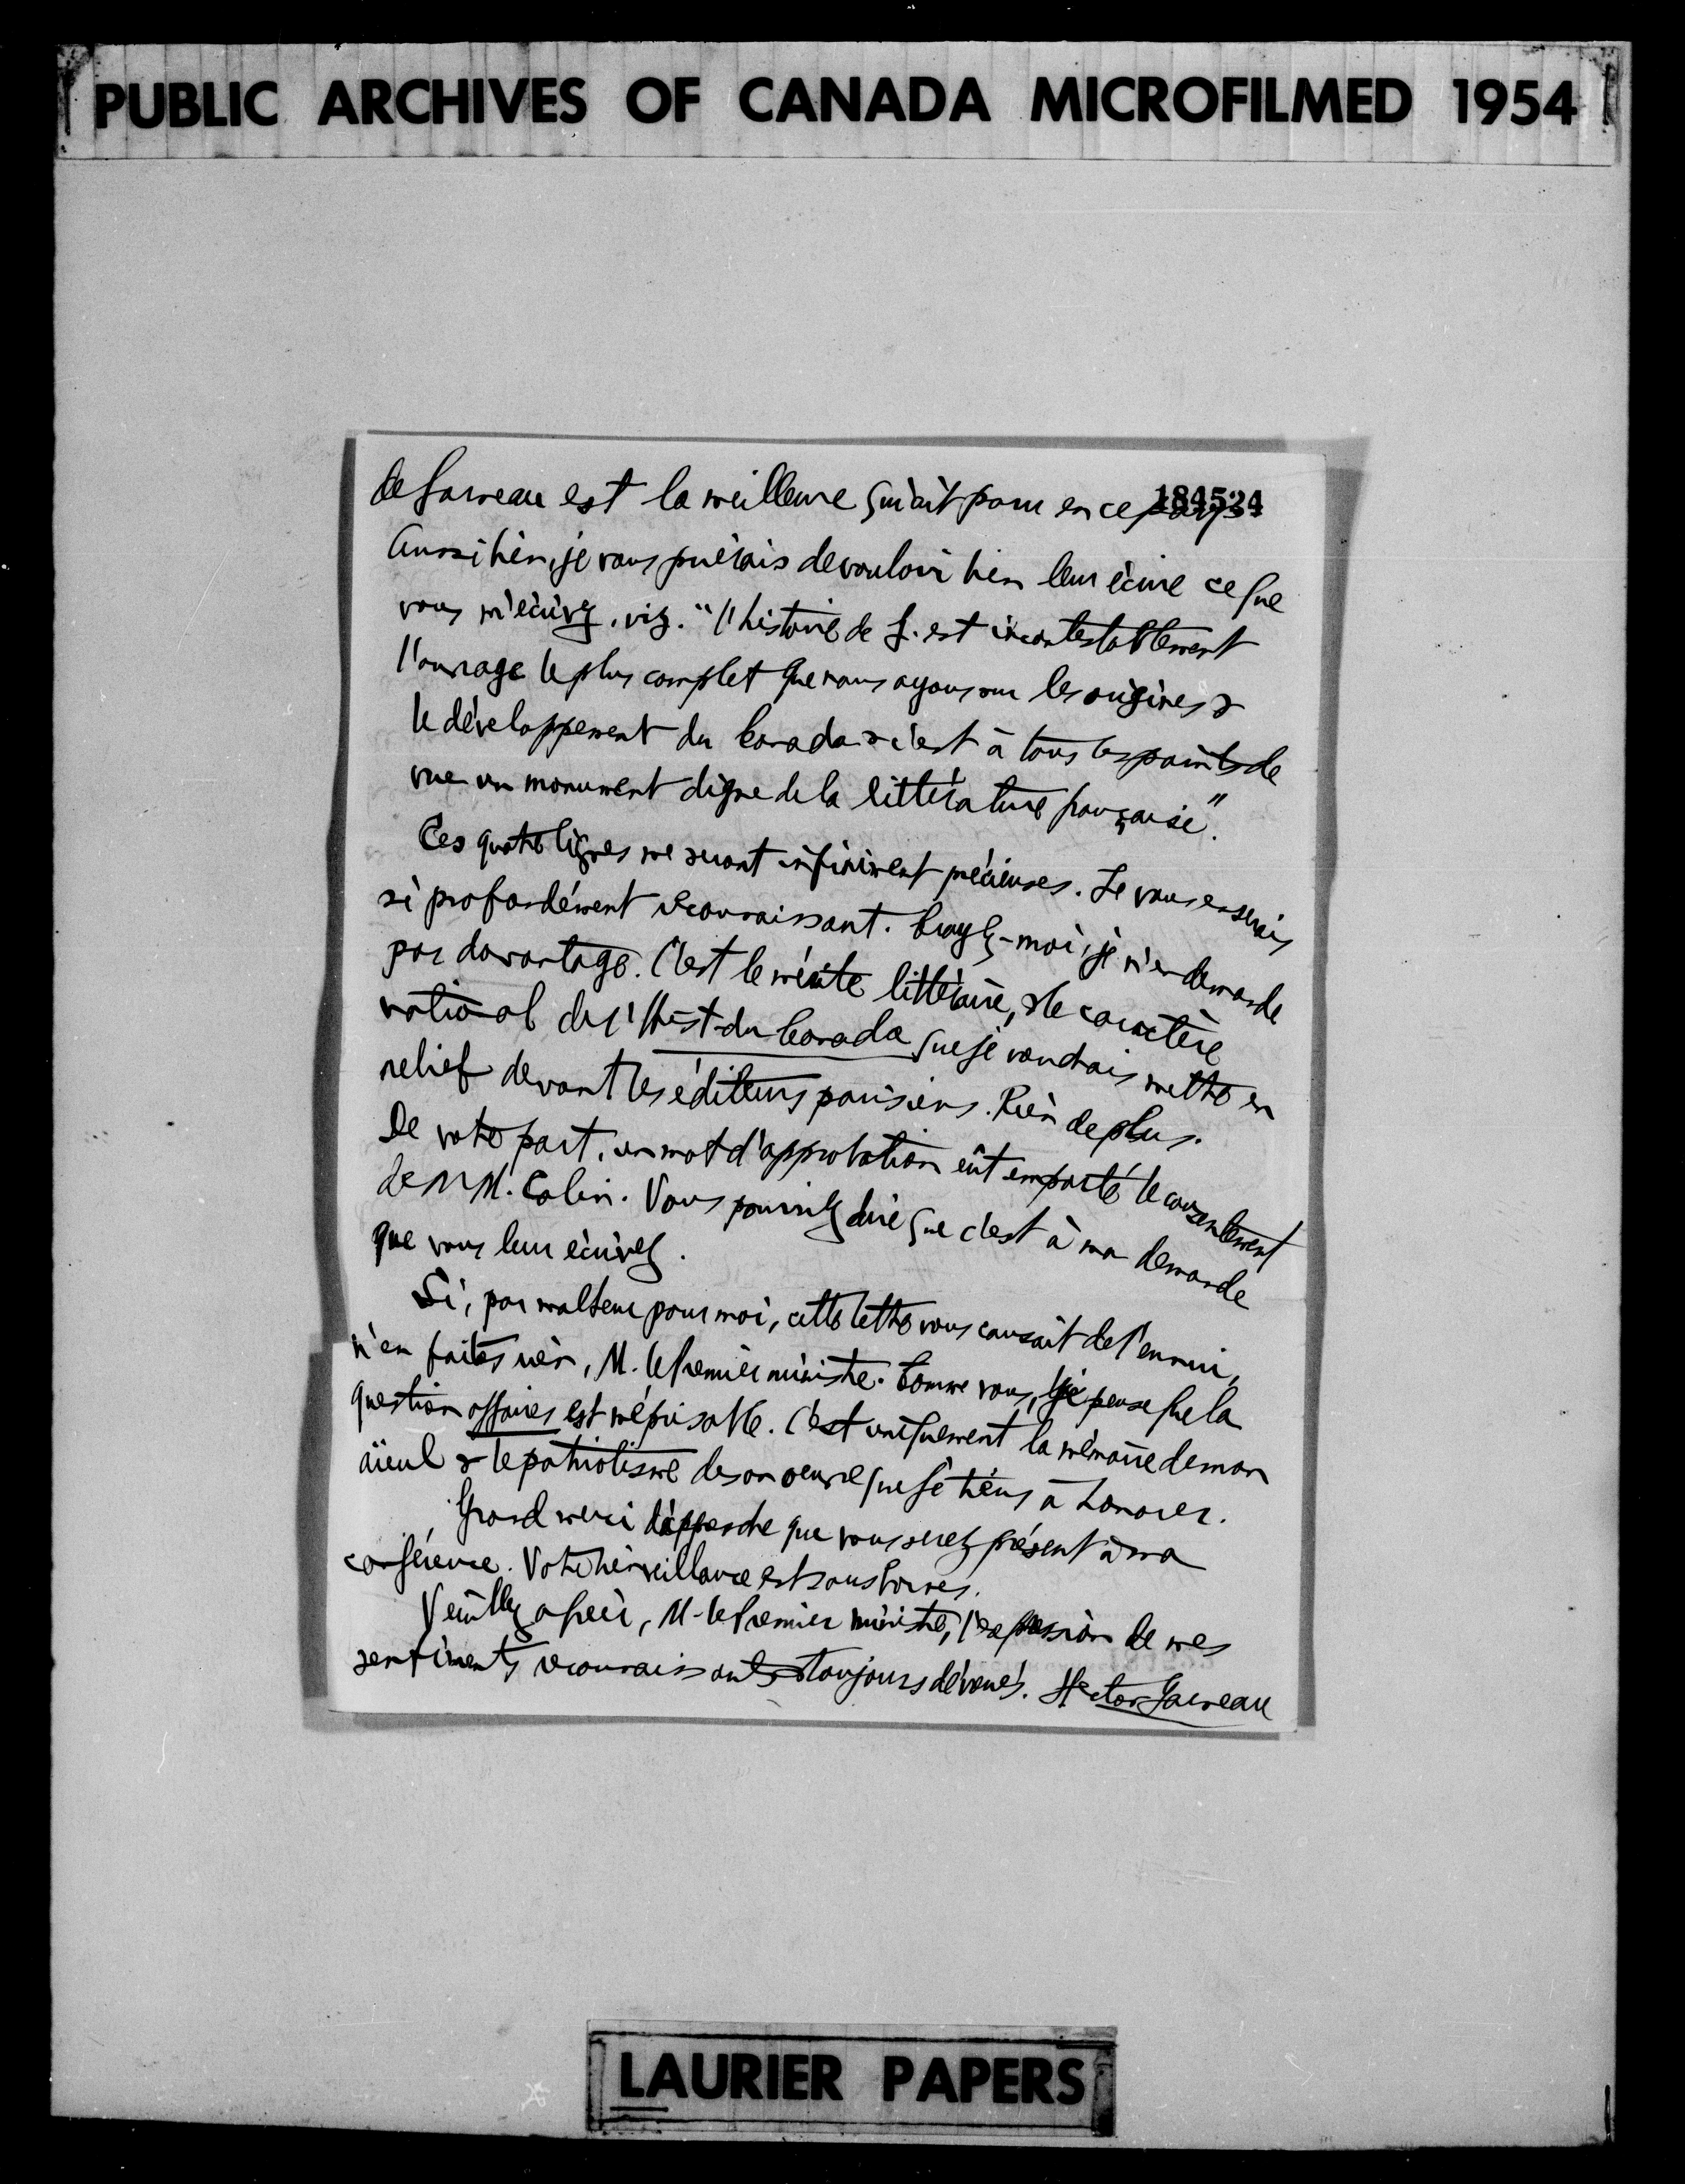 PUBLIC ARCHIVES OF CANADA MICROFILMED 1954
184524
de Garneau est la meilleure qui ait paru en ce pays
Aussi bien, je vous prierais de vouloir bien leur écrire ce que
vous m'écrivez, viz. "l'histoire de G. est incontestablement
l'ouvrage le plus complet que nous ayons sur les origines &
le développement du Canada & c'est à tous les points de
vue un monument digne de la littérature française".
Ces quatre lignes me seront infiniment précieuses. Je vous en serais
si profondément reconnaissant. Croyez-moi, je n'en demande
pas davantage. C'est le mérite littéraire, & le caractère
national de l'Hist. du Canada que je voudrais mettre en
relief devant les éditeurs parisiens. Rien de plus.
De votre part, un mot d'approbation eût emporté le consentement
de MM. Colin. Vous pourriez dire que c'est à ma demande
que vous leur écrivez.
Si, par malheur pour moi, cette lettre vous causait de l'ennui,
n'en faites rien, M. le Premier ministre. Comme vous, je pense que la
question affaires est méprisable. C'est uniquement la mémoire de mon
aïeul & le patriotisme de son oeuvre que je tiens à honorer.
Grand merci d'apprendre que vous serez présent à ma
conférence. Votre bienveillance est sans bornes.
Veuillez agréer, M. le Premier ministre, l'expression de mes
sentiments reconnaissants & toujours dévoués. Hector Garneau
LAURIER PAPERS